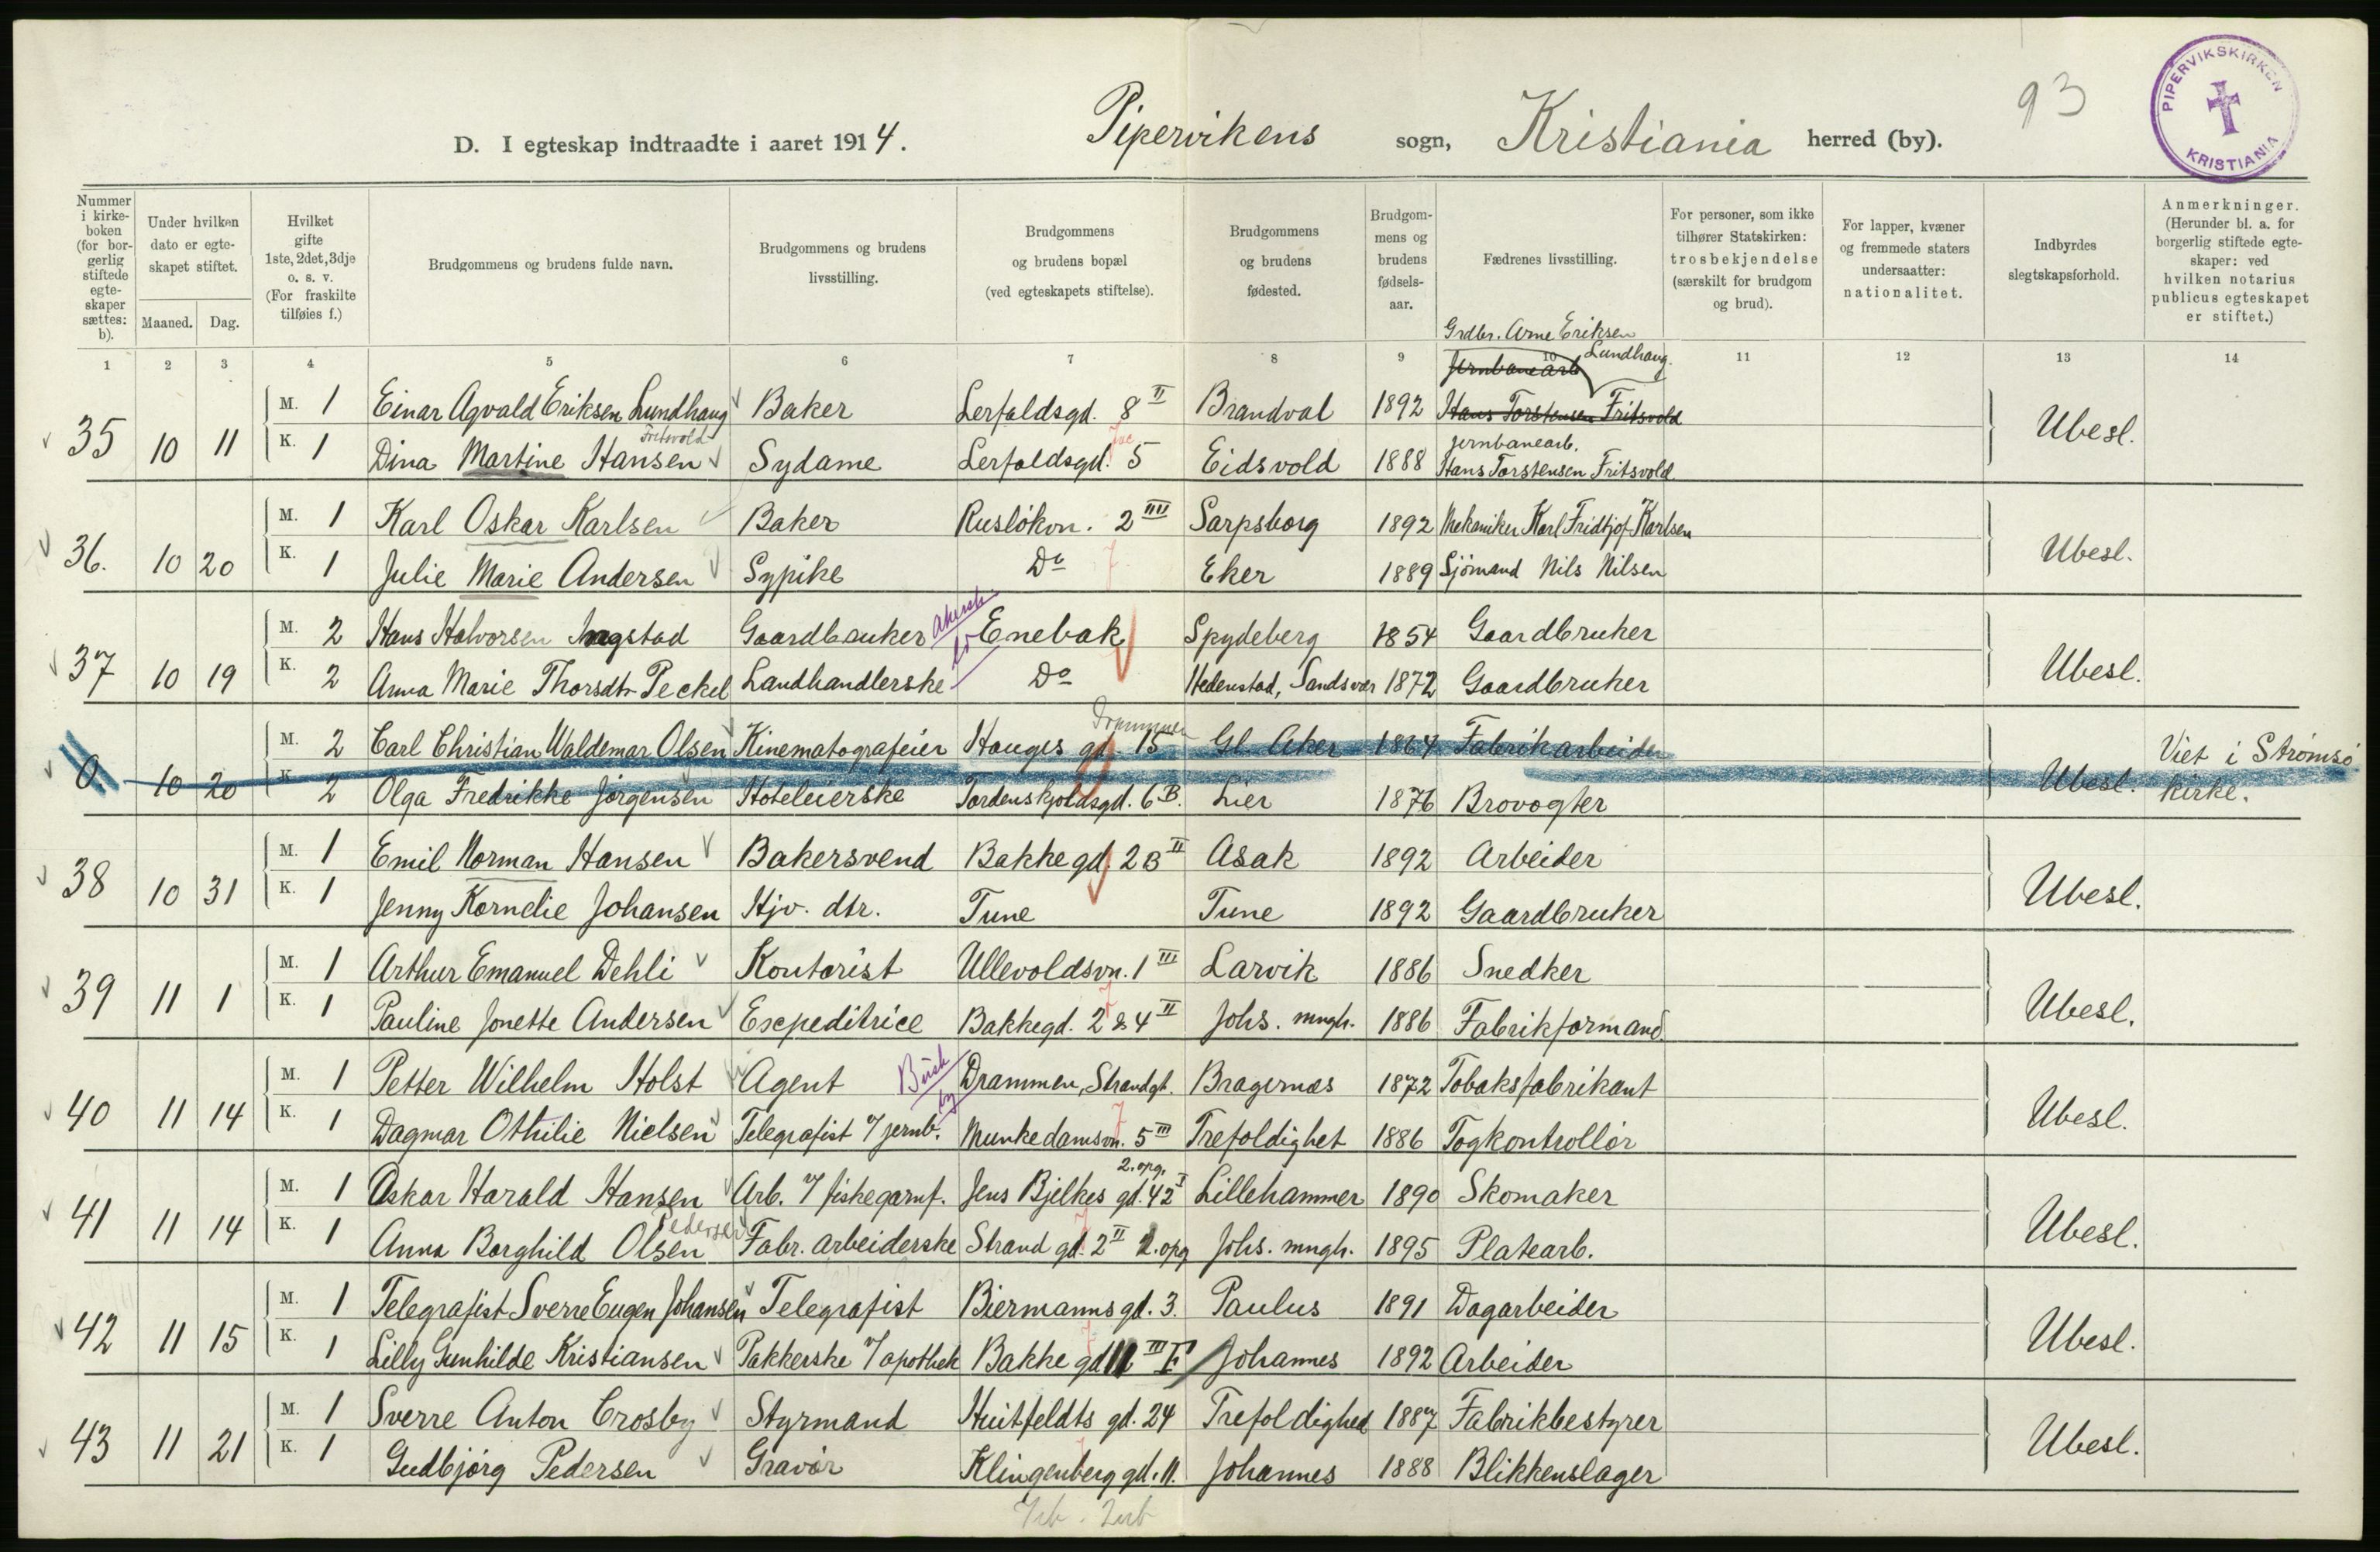 93
PIPERVIKSKIRKEN KRISTIANIA
D. I egteskap indtraadte i aaret 1914. Pipervikens sogn, Kristiania herred (by).
Nummer i kirke-boken (for bor-gerlig stiftede egte-skaper sættes: b). | Under hvilken dato er egte-skapet stiftet. Maaned. Dag. | Hvilket gifte 1ste, 2det, 3dje o. s. v. (For fraskilte tilføies f.) | Brudgommens og brudens fulde navn. | Brudgommens og brudens livsstilling. | Brudgommens og brudens bopæl (ved egteskapets stiftelse). | Brudgommens og brudens fødested. | Brudgom-mens og brudens fødsels-aar. | Fædrenes livsstilling. | For personer, som ikke tilhører Statskirken: trosbekjendelse (særskilt for brudgom og brud). | For lapper, kvæner og fremmede staters undersaatter: nationalitet. | Indbyrdes slegtskapsforhold. | Anmerkninger. (Herunder bl. a. for borgerlig stiftede egte-skaper: ved hvilken notarius publicus egteskapet er stiftet.)
1 2 3 4 5 6 7 8 9 10 11 12 13 14
Grdbr. Arne Eriksen Lundhaug.
Jernbanearb
35 10 11 M. 1 Einar Agvald Eriksen Lundhaug Baker Lerfaldsgd. 8 II Brandval 1892 Hans Torstensen Fritsvold Ubesl.
Fritsvold jernbanearb.
K. 1 Dina Martine Hansen Sydame Lerfaldsgd. 5 Eidsvold 1888 Hans Torstensen Fritsvold
36. 10 20 M. 1 Karl Oskar Karlsen Baker Rusløkvn. 2 III Sarpsborg 1892 Mekaniker Karl Fridtjof Karlsen Ubesl.
K. 1 Julie Marie Andersen Sypike Do Eker 1889 Sjømand Nils Nilsen
37 10 19 M. 2 Hans Halvorsen Ingstad Gaardbruker Akersh. Enebak Spydeberg 1854 Gaardbruker Ubesl.
K. 2 Anna Marie Thorsdtr Peckel Landhandlerske Do Hedenstad, Sandsvær 1872 Gaardbruker
Drammen
0. 10 20 M. 2 Carl Christian Waldemar Olsen Kinematografeier Hauges gd. 15 Gl. Aker 1864 Fabrikarbeider Ubesl. Viet i Strømsø kirke.
K. 2 Olga Fredrikke Jørgensen Hoteleierske Tordenskjoldsgd. 6 B. Lier 1876 Brovogter
38 10 31 M. 1 Emil Norman Hansen Bakersvend Bakke gd. 2 B II Asak 1892 Arbeider Ubesl.
K. 1 Jenny Kornelie Johansen Hjv. dtr. Tune Tune 1892 Gaardbruker
39 11 1 M. 1 Arthur Emanuel Dehli Kontorist Ullevoldsvn. 1 III Larvik 1886 Snedker Ubesl.
K. 1 Pauline Jonette Andersen Excpeditrice Bakkegd. 2 & 4 II Johs. mngh. 1886 Fabrikformand
40 11 14 M. 1 Petter Wilhelm Holst Agent Busk by Drammen, Strandgt. Bragernæs 1872 Tobaksfabrikant Ubesl.
K. 1 Dagmar Othilie Nielsen Telegrafist v/ jernb. Munkedamsvn. 5 III Trefoldighet 1886 Togkontrollør
2. opg.
41 11 14 M. 1 Oskar Harald Hansen Arb. v/ fiskegarnf. Jens Bjelkes gd. 42 I Lillehammer 1890 Skomaker Ubesl.
Pedersen
K. 1 Anna Borghild Olsen Fabr. arbeiderske Strand gd. 2 II 2. opg Johs. mngh. 1895 Platearb.
42 11 15 M. 1 Telegrafist Sverre Eugen Johansen Telegrafist Biermanns gd. 3. Paulus 1891 Dagarbeider Ubesl.
K. 1 Lilly Gunhilde Kristiansen Pakkerske v/ apothek Bakke gd 11 III F Johannes 1892 Arbeider
43 11 21 M. 1 Sverre Anton Crosby Styrmand Huitfeldts gd. 24 Trefoldighed 1887 Fabrikbestyrer Ubesl.
K. 1 Gudbjørg Pedersen Gravør Klingenberg gd. 11. Johannes 1888 Blikkenslager